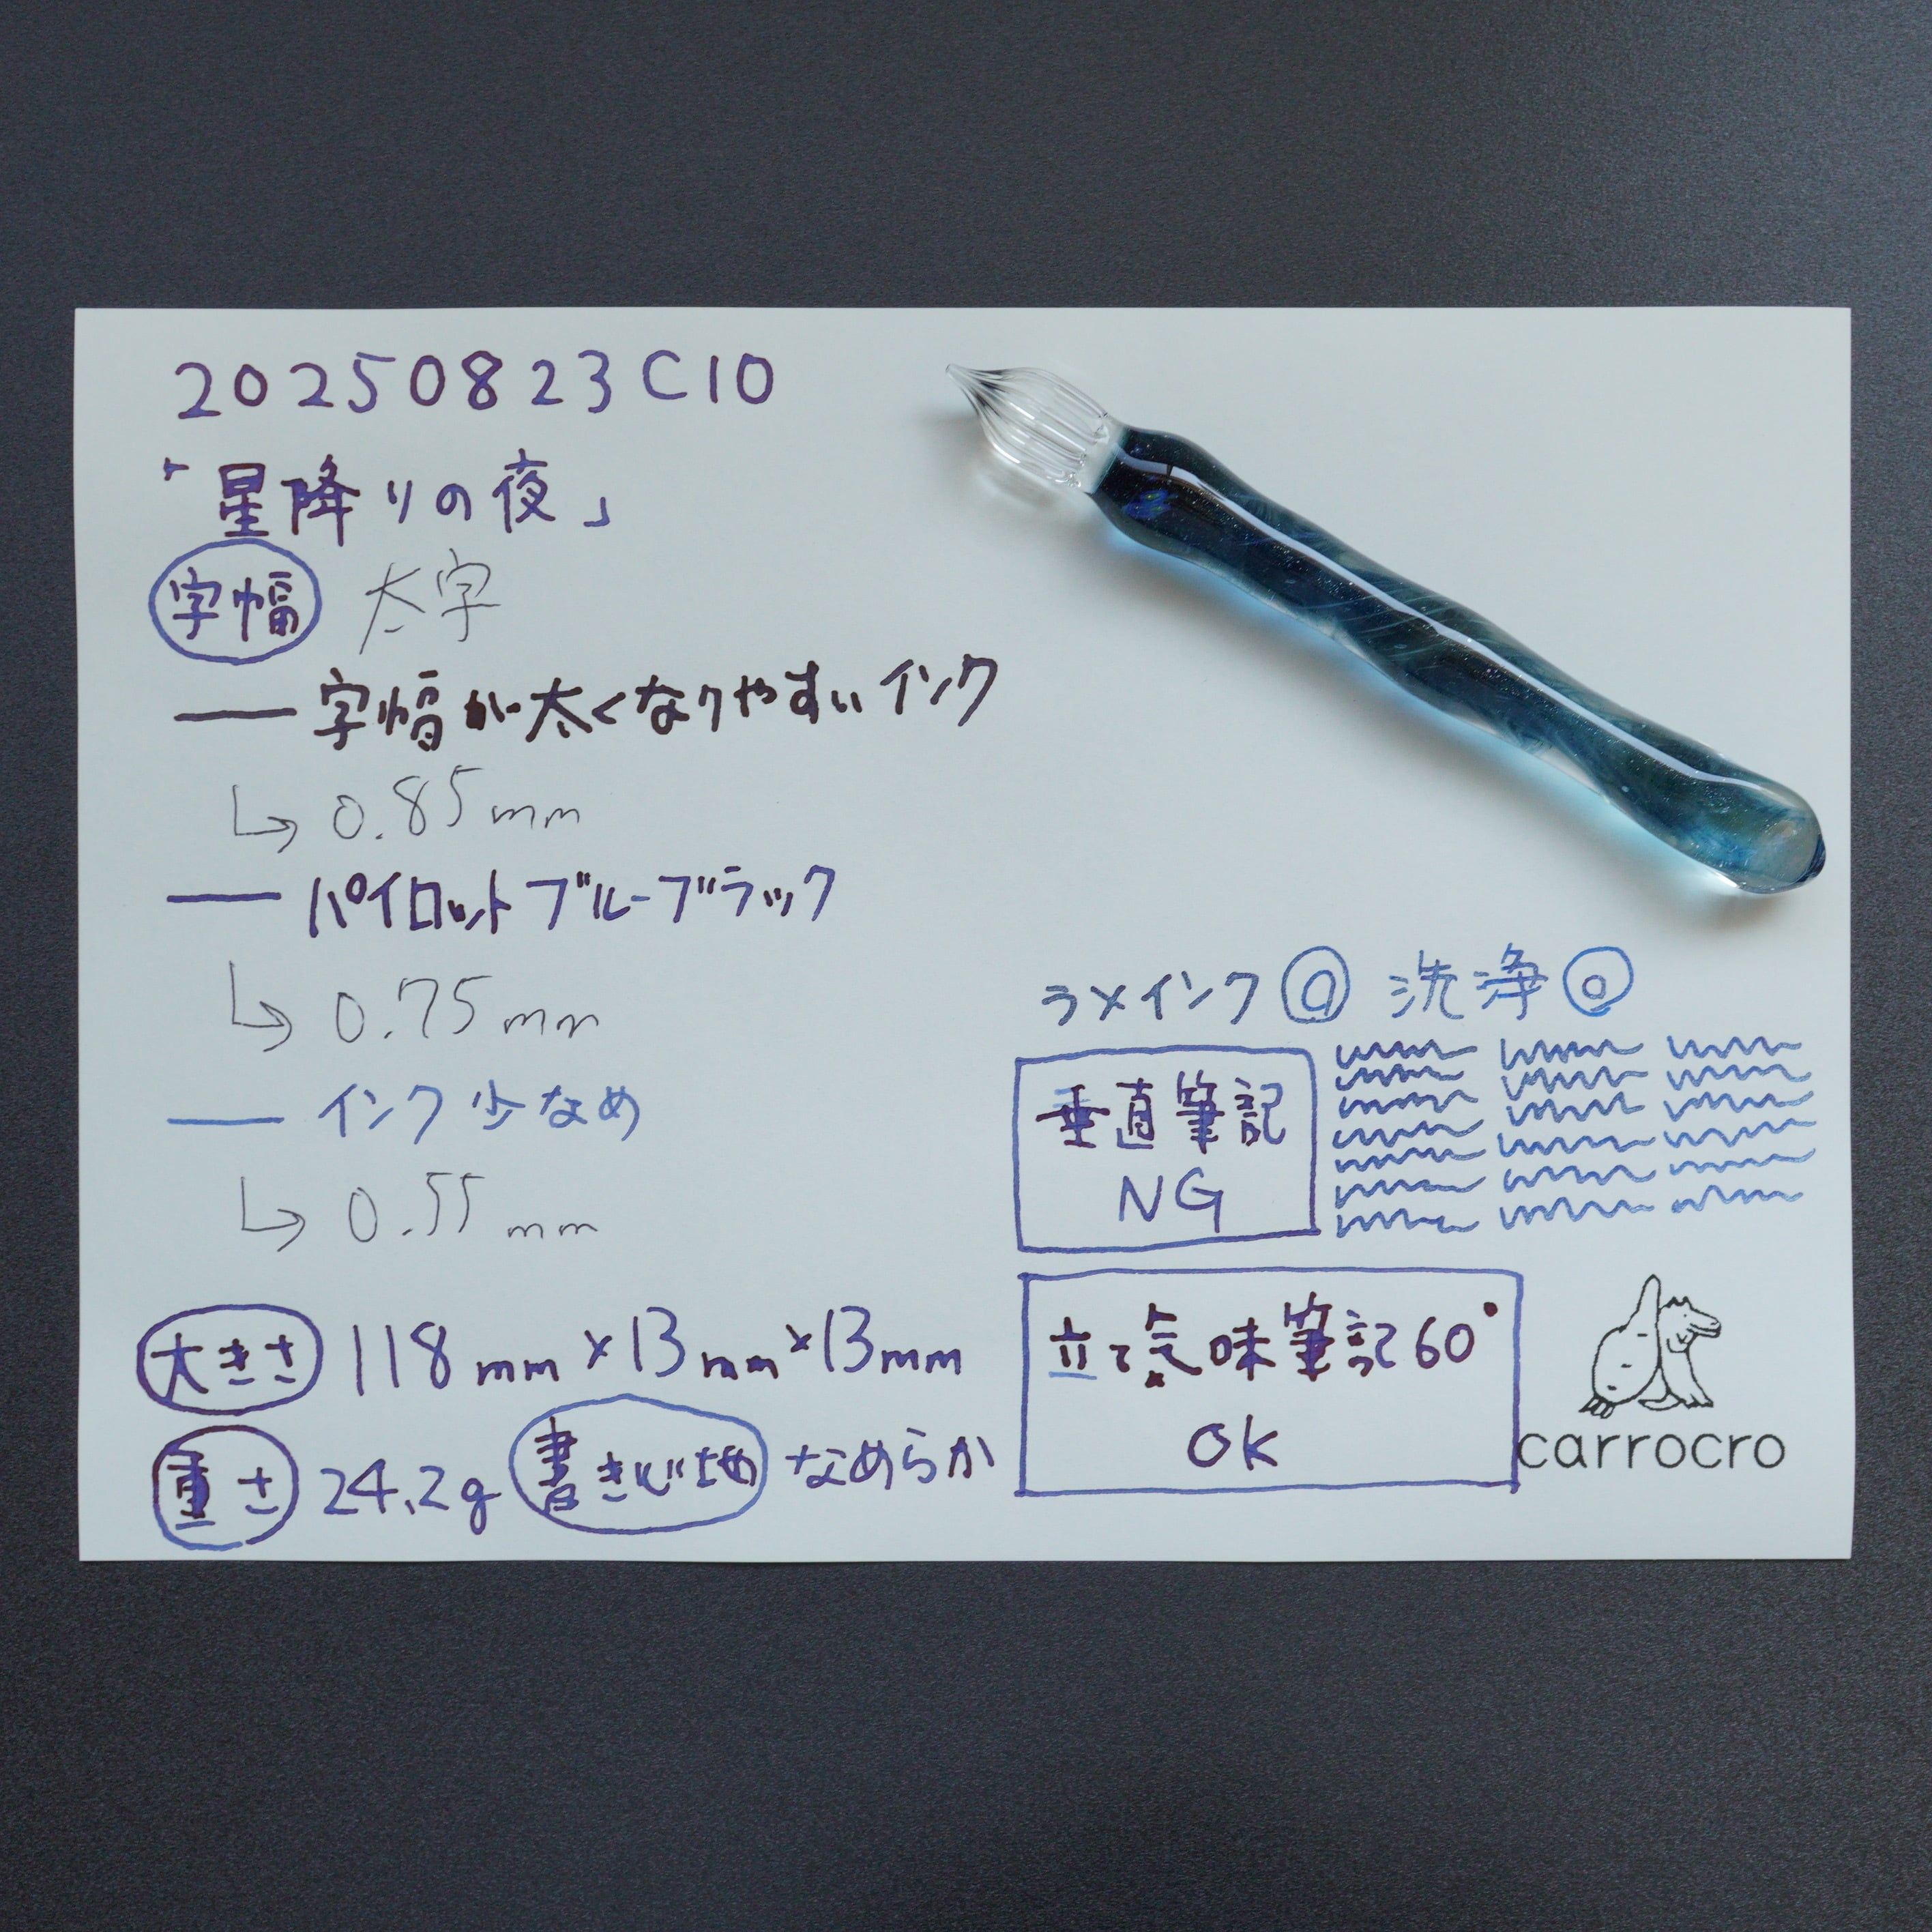 20250823C10
「星降りの夜」
字幅 太字
— 字幅が太くなりやすいインク
↳ 0.85mm
— パイロットブルーブラック
↳ 0.75mm
— インク少なめ
↳ 0.55mm
大きさ 118mm×13mm×13mm
重さ 24.2g 書き心地 なめらか
ラメインク◎ 洗浄◎
垂直筆記
NG
立て気味筆記60°
OK
carrocro